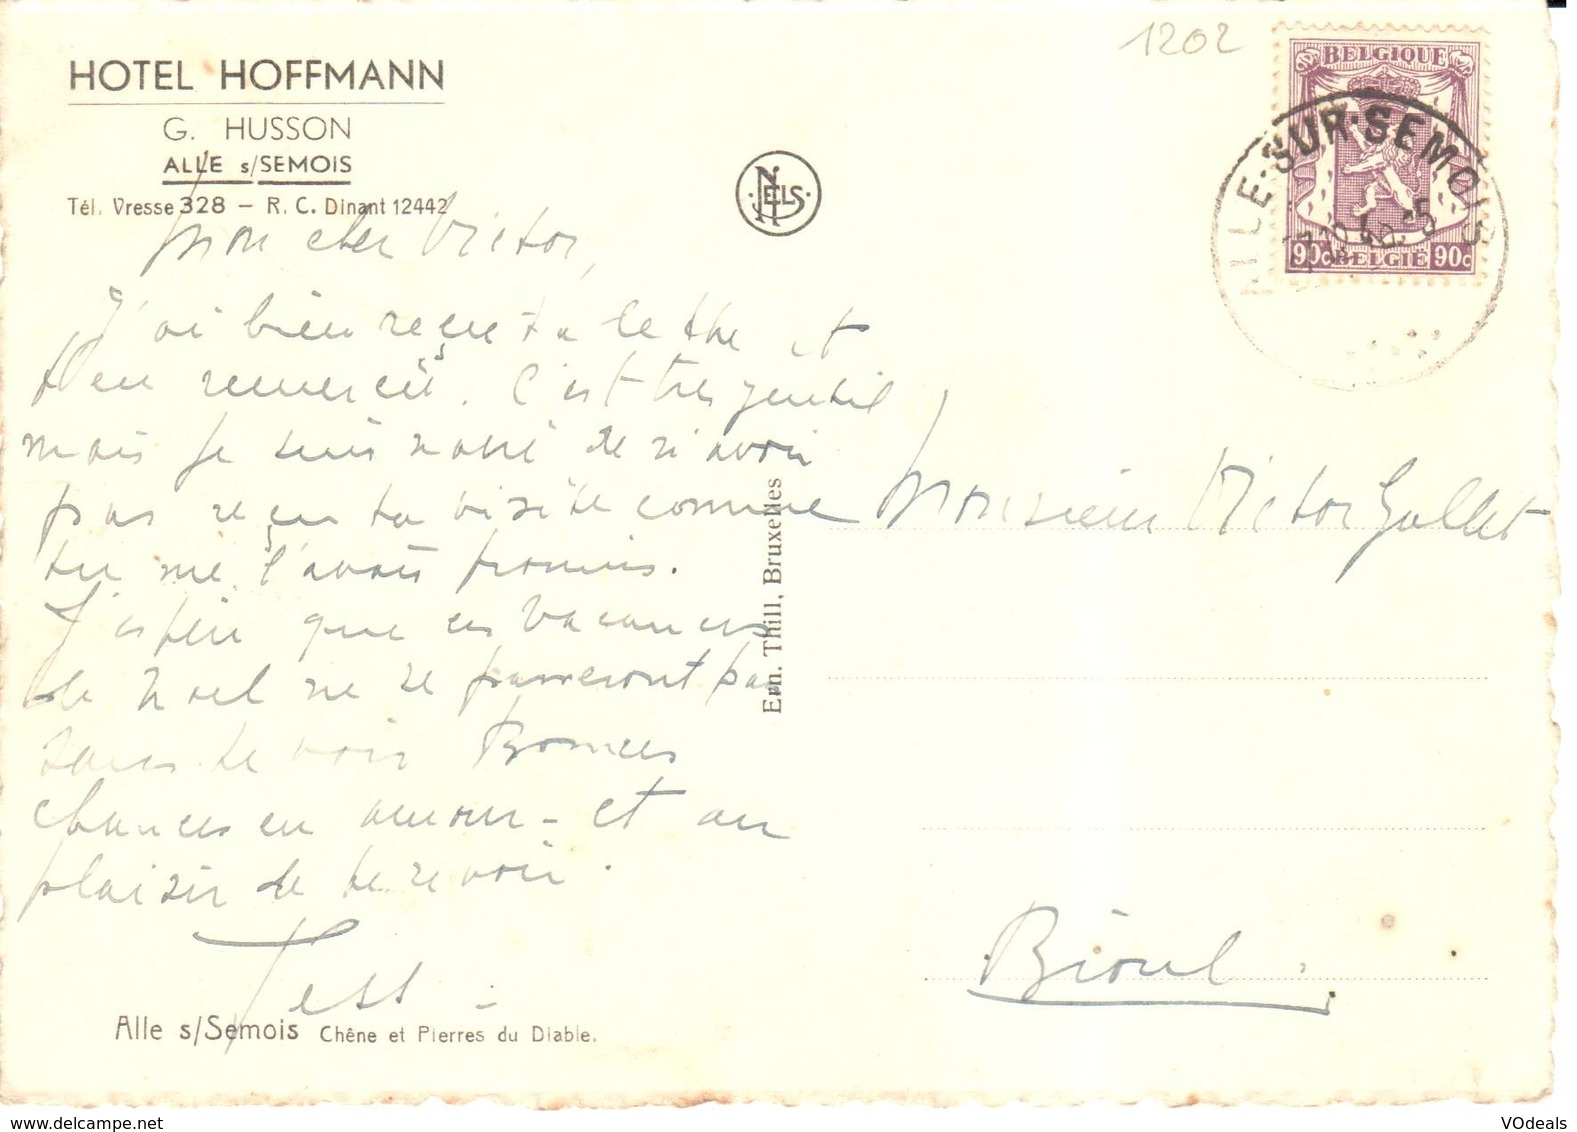 1202
HOTEL HOFFMANN
G. HUSSON
ALLE s/SEMOIS
Tél. Vresse 328 – R. C. Dinant 12442
NELS
BELGIQUE
90c BELGIË 90c
ALLE-SUR-SEMOIS
Mon cher Victor,
J'ai bien reçu ta lettre et
t'en remercie. C'est très gentil
mais je suis navré de n'avoir
pas reçu ta visite comme
tu me l'avais promis.
J'espère que ces vacances
de Noel ne se passeront pas
sans te voir Bonnes
chances en amour - et au
plaisir de te revoir.
Alle s/Semois Chêne et Pierres du Diable.
Ern. Thill, Bruxelles
Monsieur Victor Gallet
Bioul.
VOdeals